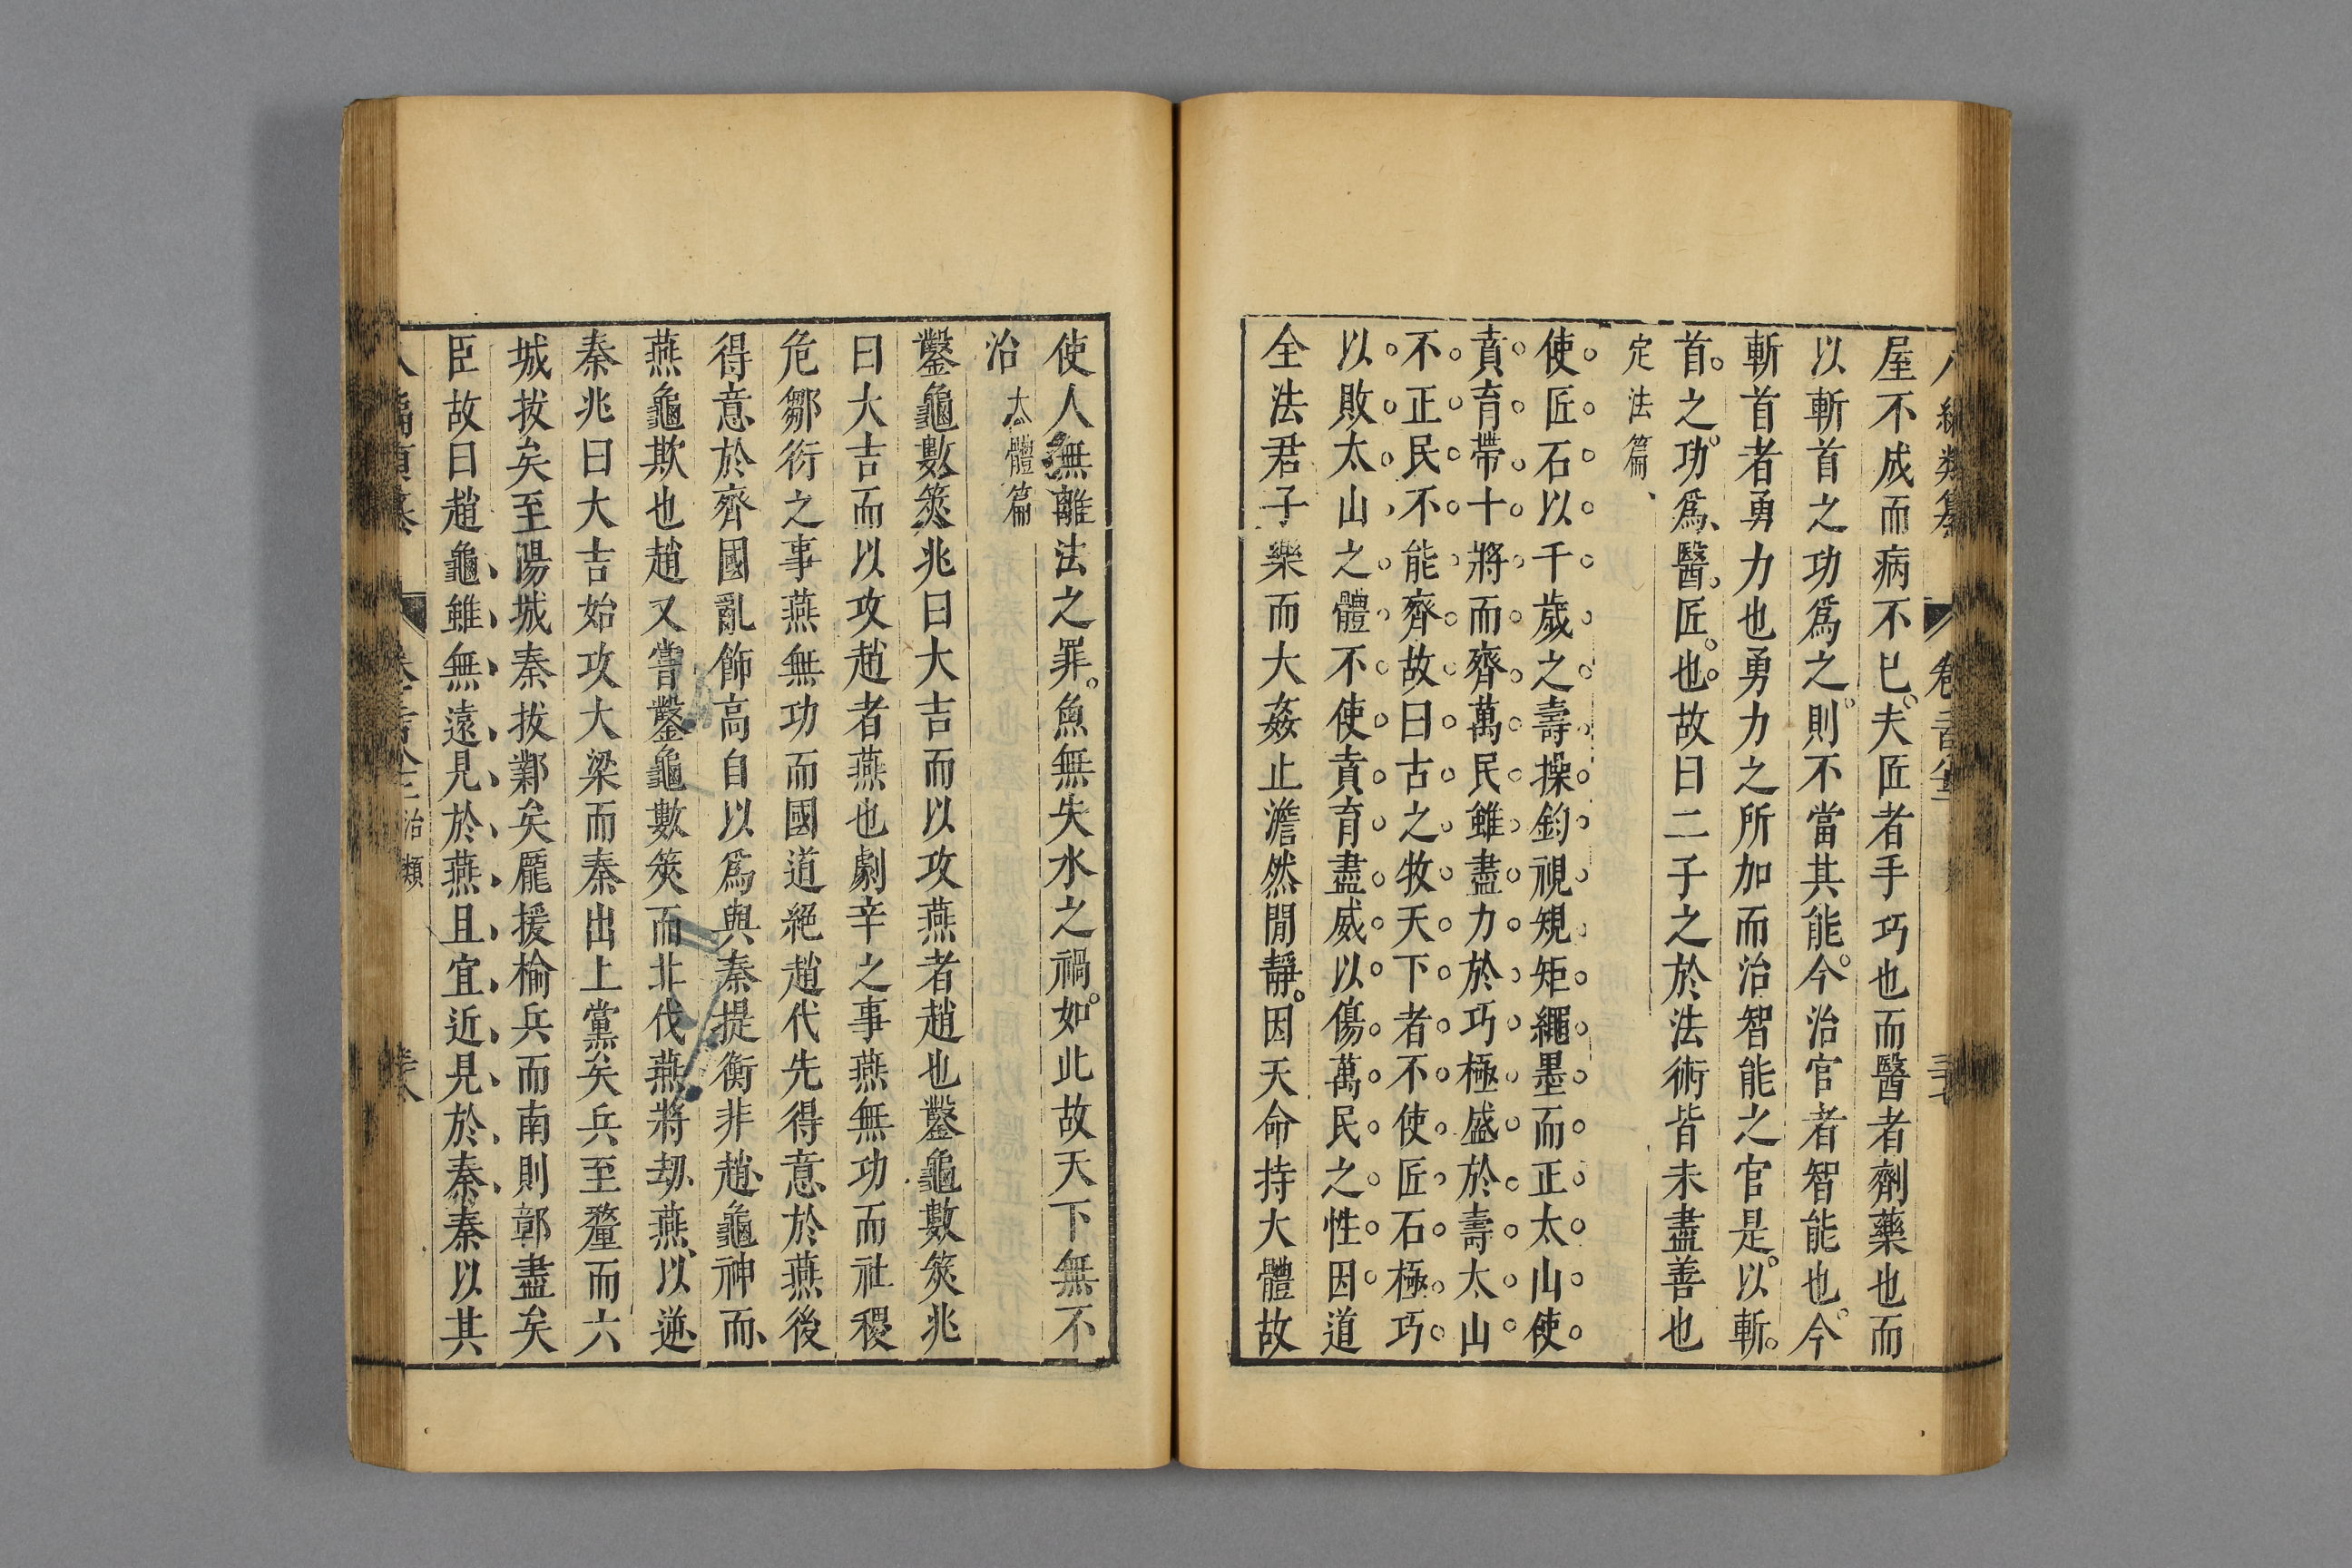 屋不成而病不已夫匠者手巧也而醫者劑藥也而
以斬首之功爲之則不當其能今治官者智能也今
斬首者勇力也勇力之所加而治智能之官是以斬
首之功爲醫匠也故曰二子之於法術皆未盡善也
定法篇
使匠石以千歲之壽操鈞視規矩繩墨而正太山使
賁育帶十將而齊萬民雖盡力於巧極盛於壽太山
不正民不能齊故曰古之牧天下者不使匠石極巧
以敗太山之體不使賁育盡威以傷萬民之性因道
全法君子樂而大姦止澹然閒靜因天命持大體故
使人無離法之罪魚無失水之禍如此故天下無不
治 大體篇
鑿龜數筴兆曰大吉而以攻燕者趙也鑿龜數筴兆
曰大吉而以攻趙者燕也劇辛之事燕無功而社稷
危鄒衍之事燕無功而國道絕趙代先得意於燕後
得意於齊國亂飾高自以爲與秦提衡非趙龜神而
燕龜欺也趙又嘗鑿龜數筴而北伐燕將劫燕以逆
秦兆曰大吉始攻大梁而秦出上黨矣兵至釐而六
城拔矣至陽城秦拔鄴矣龐援揄兵而南則鄣盡矣
臣故曰趙龜雖無遠見於燕且宜近見於秦秦以其
治類